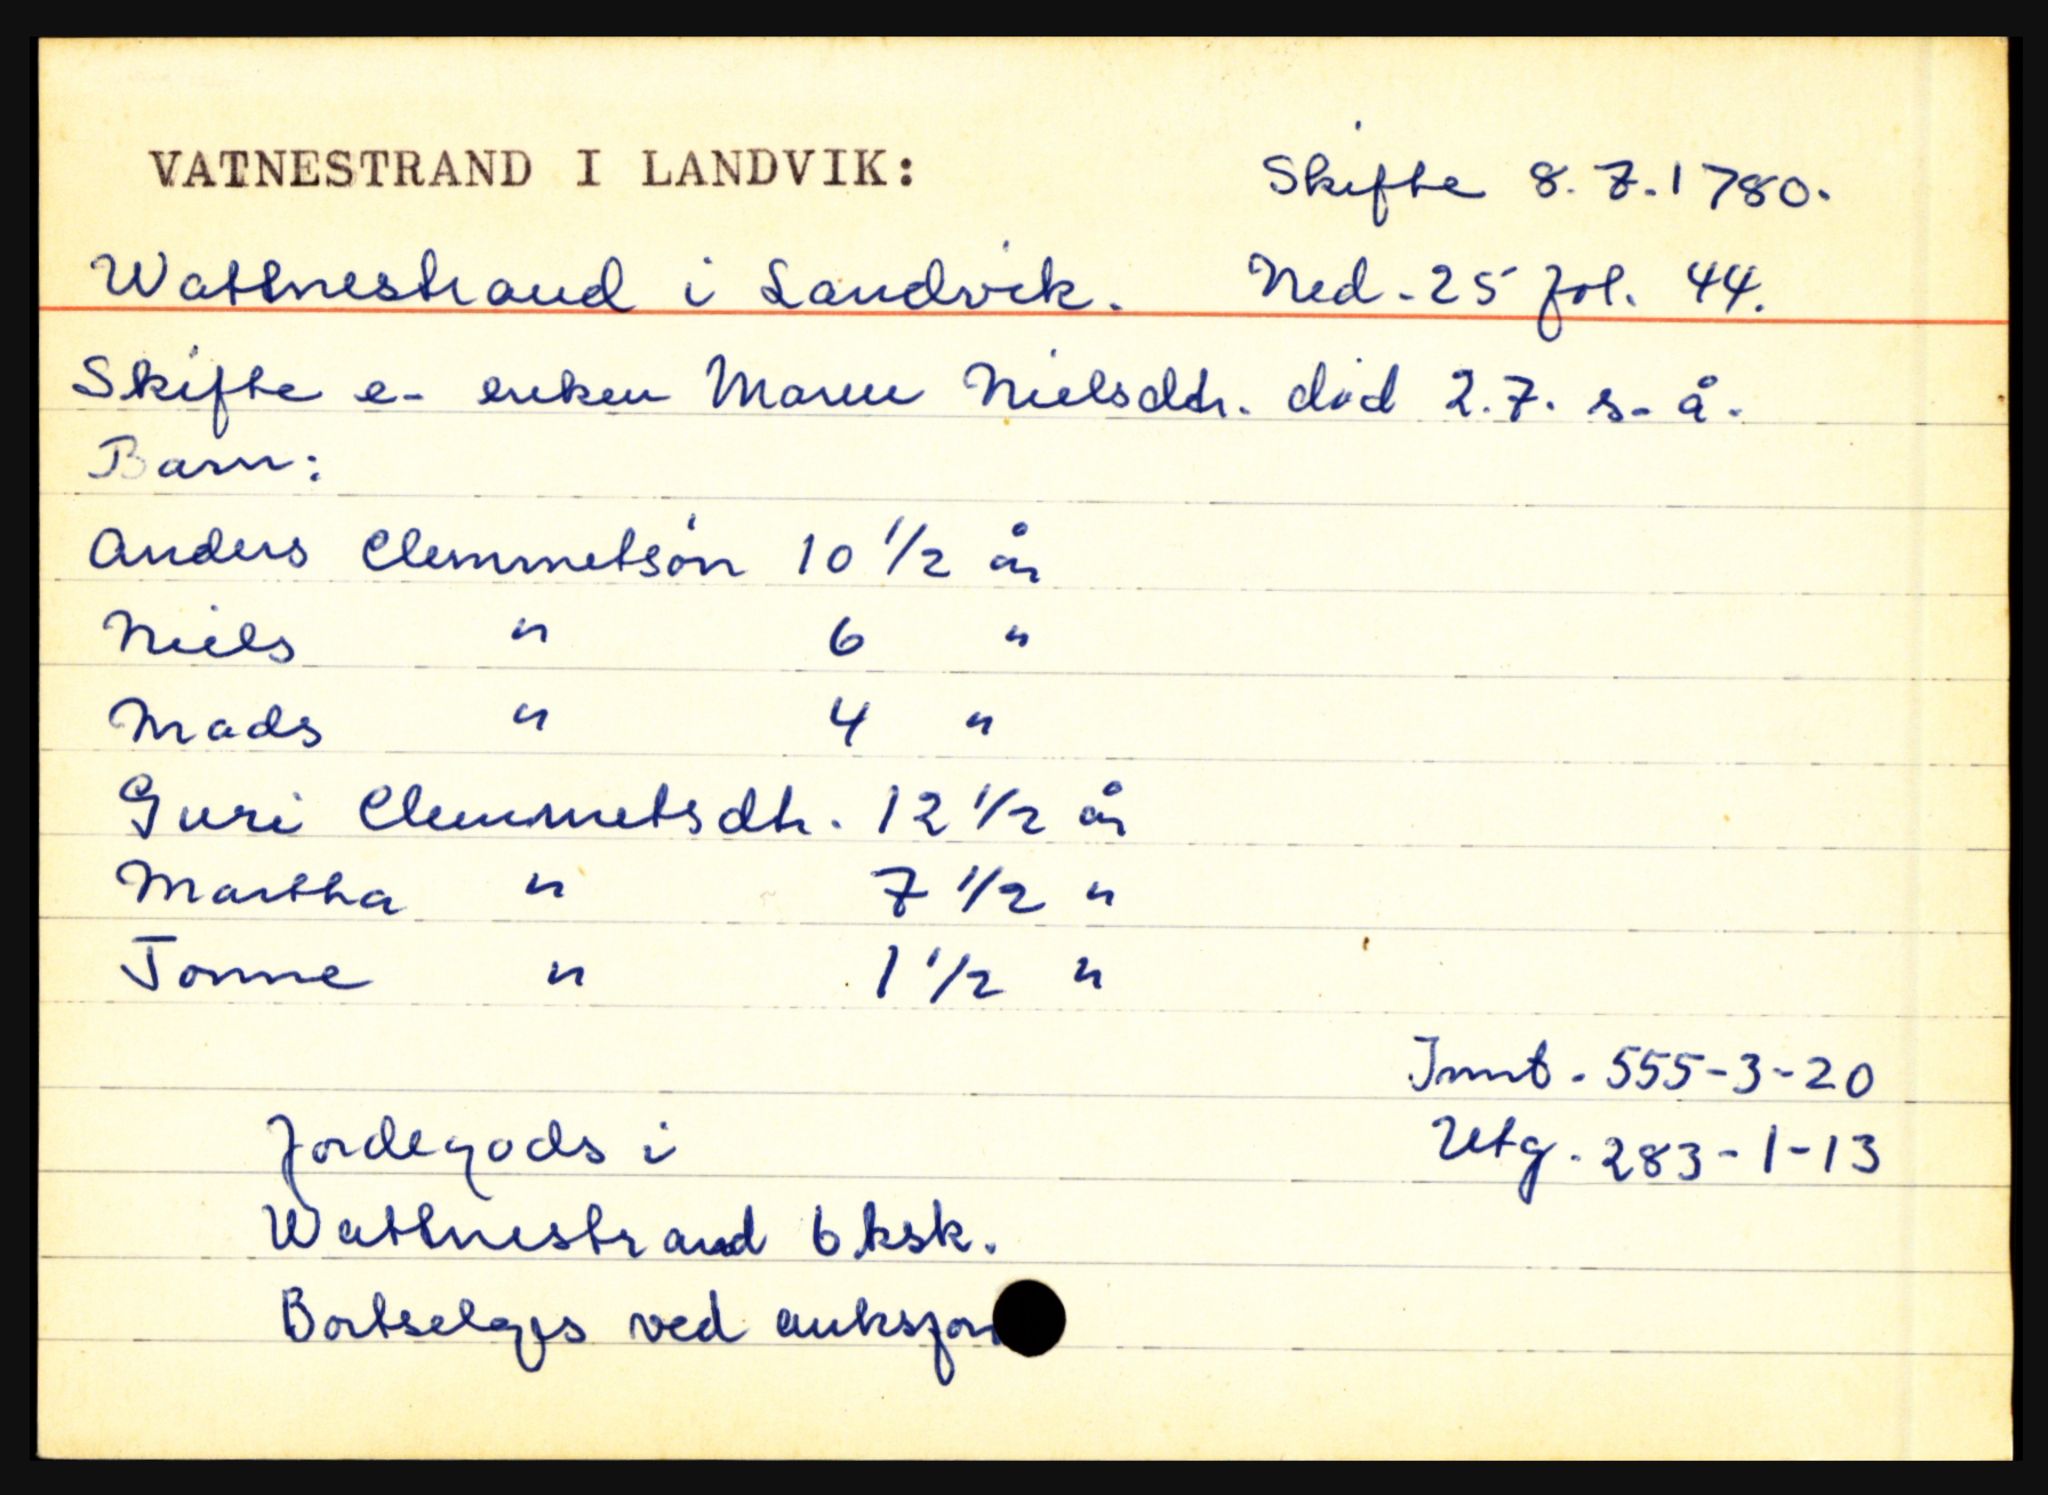 VATNESTRAND I LANDVIK: Skifte 8.7.1780.
Wattnestrand i Landvik. Ned. 25 fol. 44.
Skifte e. enken Maren Nielsdtr. död 2.7. s. å.
Barn:
Anders Clemmetsön 10 1/2 år
Niels " 6 "
Mads " 4 "
Guri Clemmetsdtr. 12 1/2 år
Martha " 7 1/2 "
Tonne " 1 1/2 "
Innt. 555-3-20
Jordegods i Utg. 283-1-13
Wattnestrand 6 ksk.
Bortselges ved auksjon